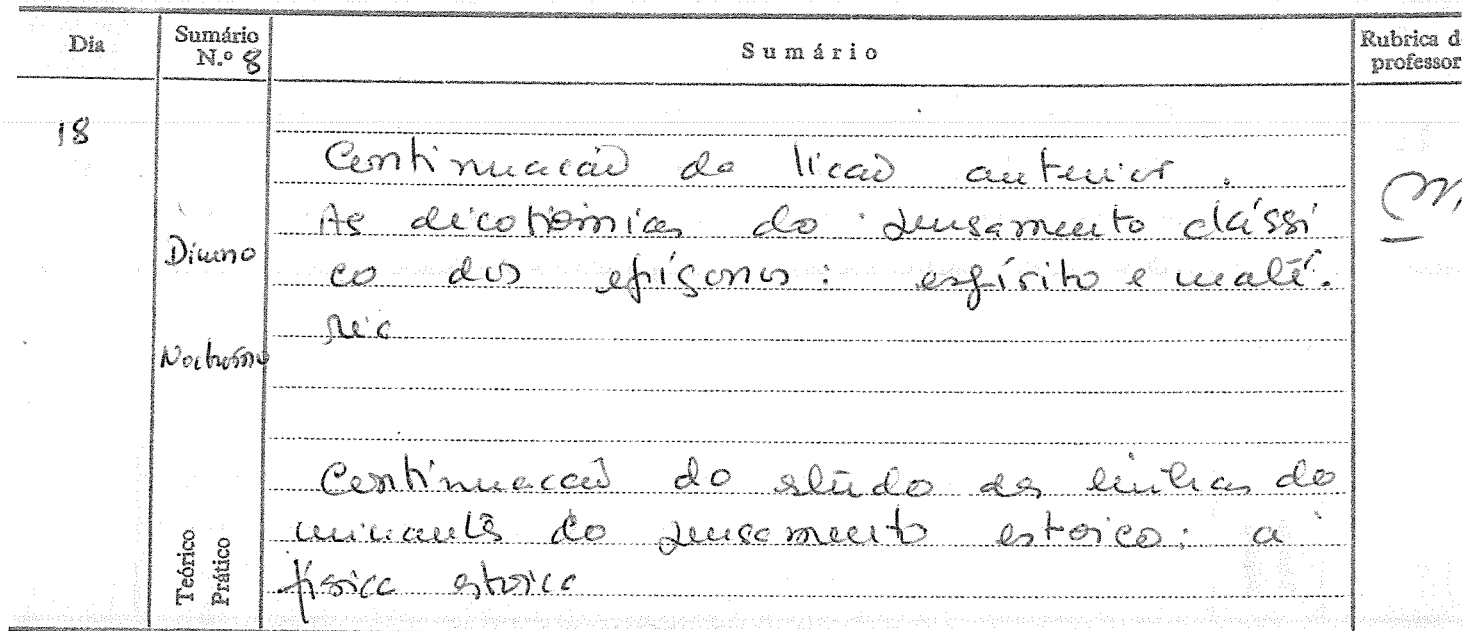 Dia
Sumário N.º 8
Sumário
Rubrica d
professor
18
Diurno
Nocturno
Continuação da lição anterior.
As dicotomias do pensamento clássi
co dos epígonos: espírito e maté-
ria
Teórico
Prático
Continuação do estudo das linhas do
minantes do pensamento estoico: a
física estoica